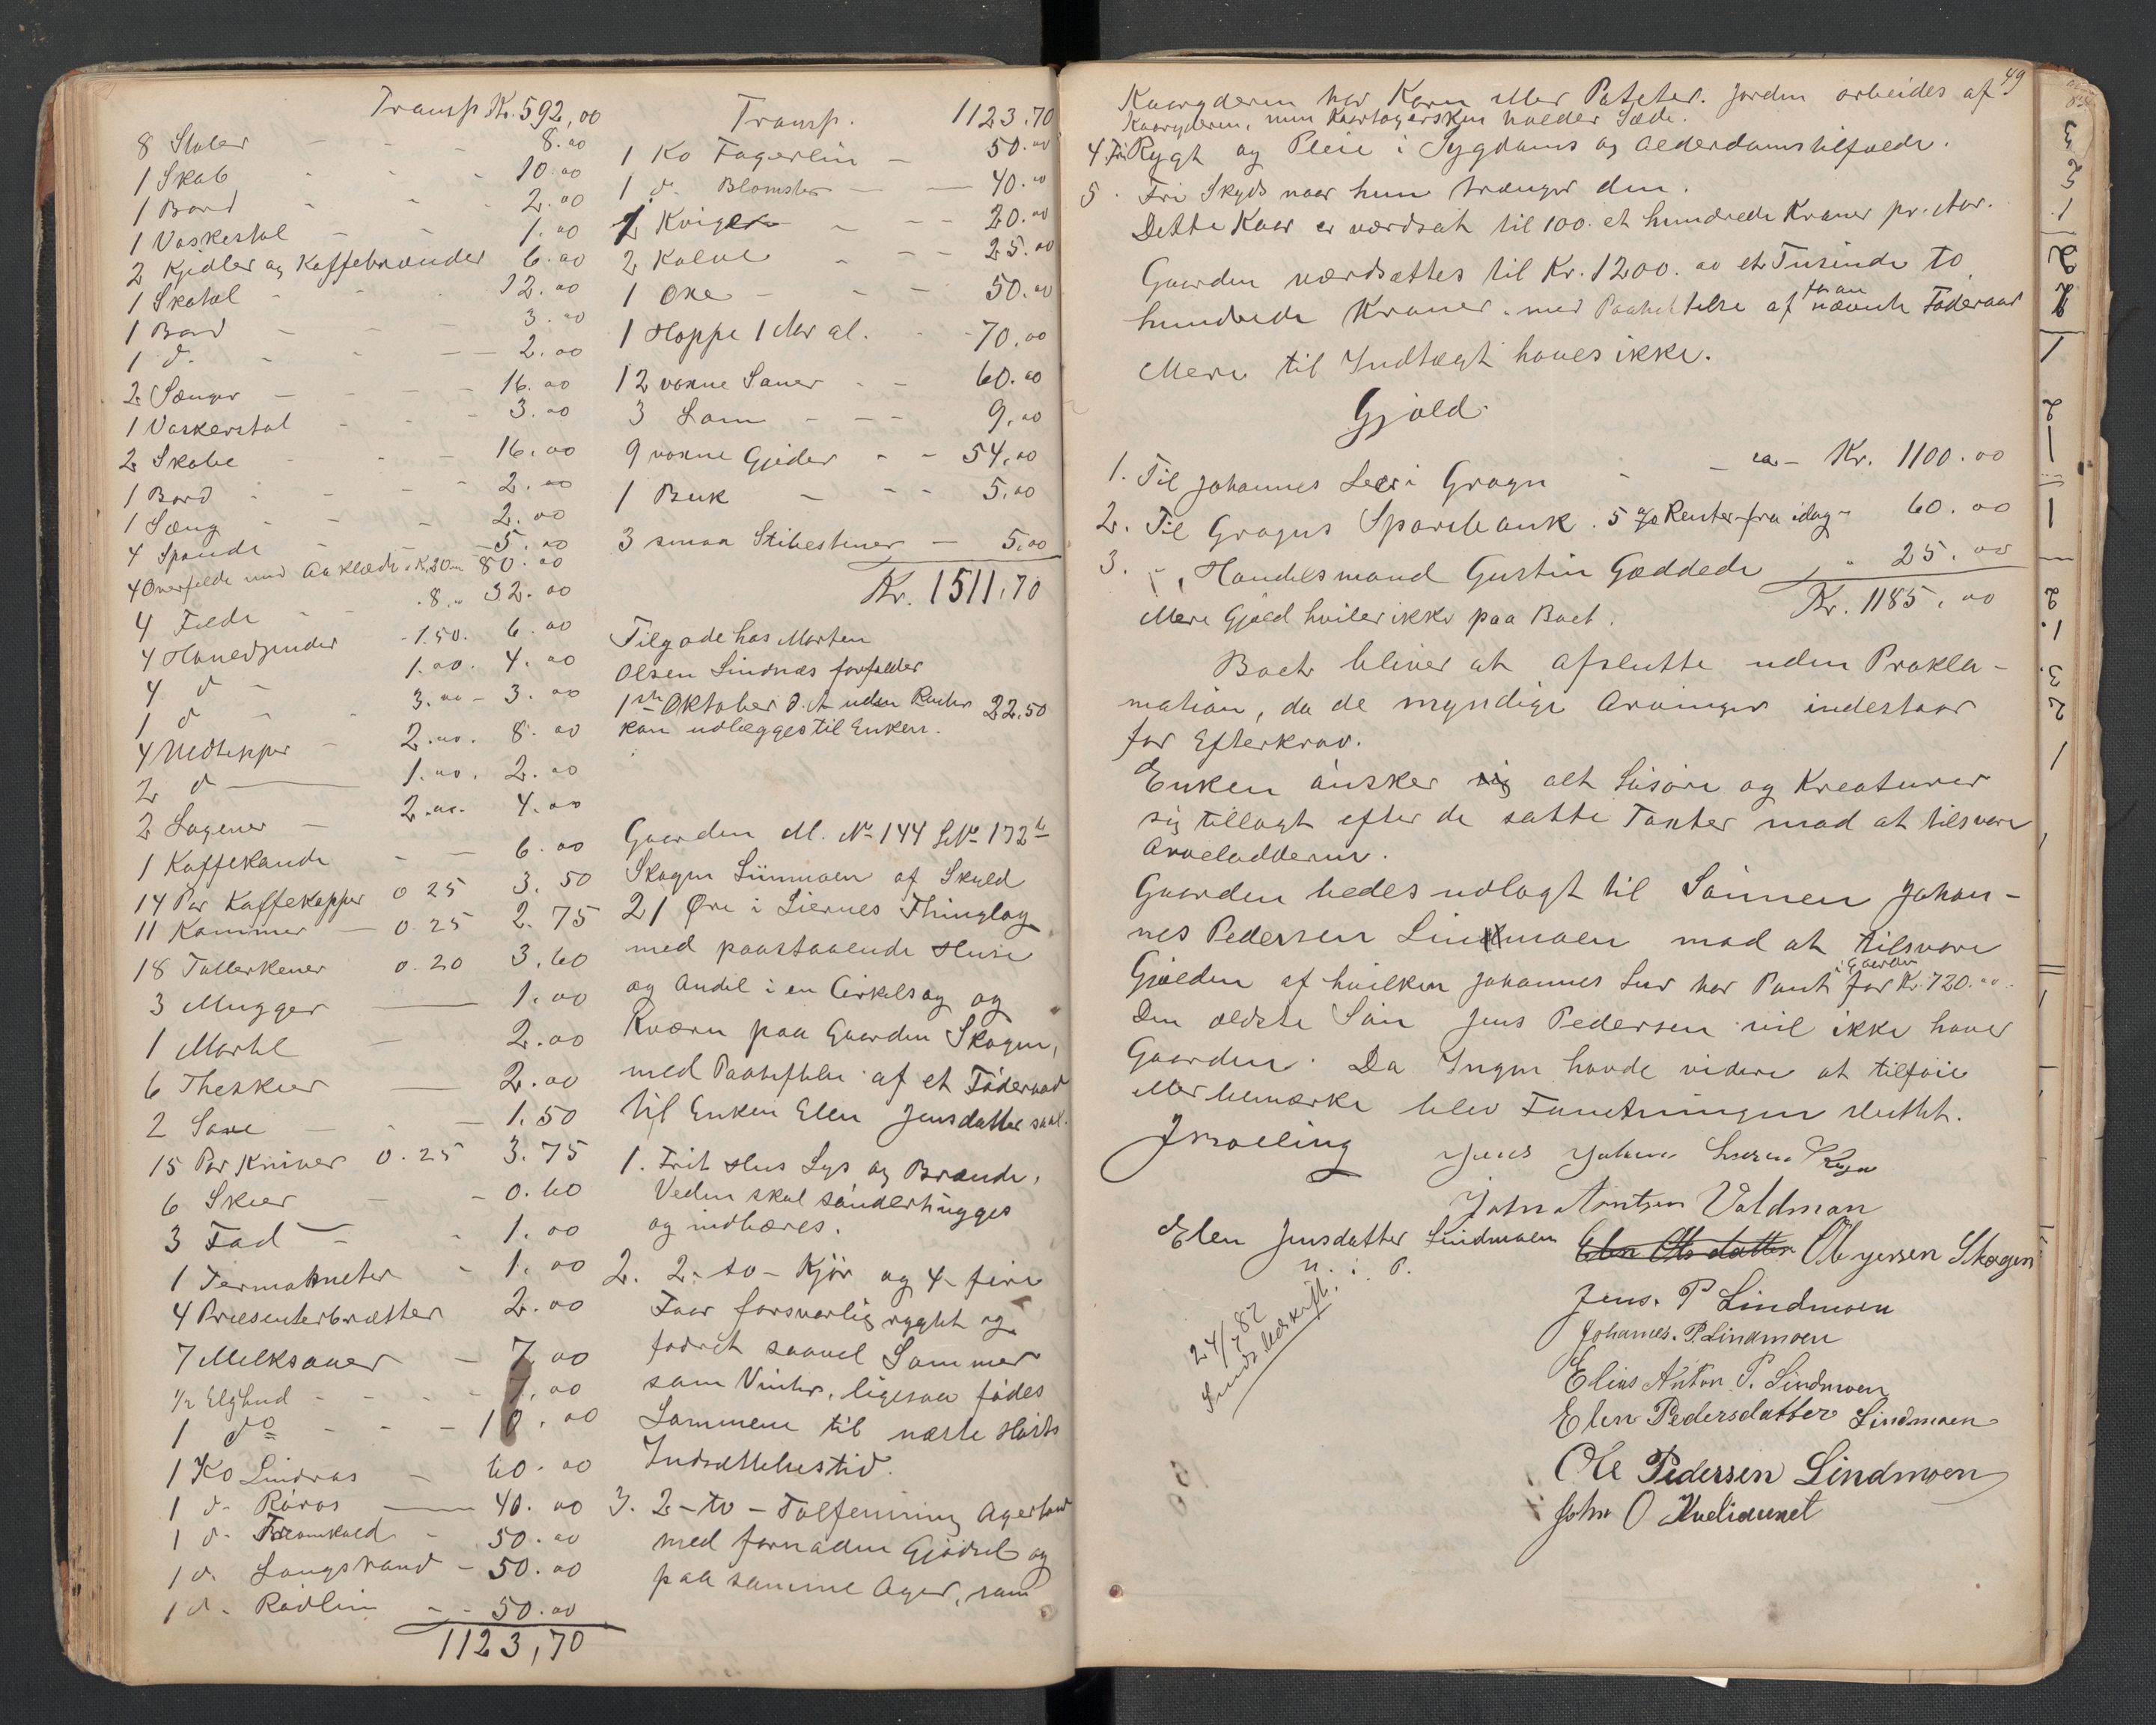 Transp. Kr. 592,00
8 Stoler - - 8.00
1 Skab - - - 10.00
1 Bord - - - 2.00
1 Vaskestol - - 1.00
2 Kjedler og Kaffebrænder 6.00
1 Skatol - - 12.00
1 Bord - - 3.00
1 do. - - 2.00
2 Senger - - 16.00
1 Vaskerstol - - 3.00
2 Skabe - - 16.00
1 Bord - - - 2.00
1 Seng - - - 2.00
4 Spande - - 5.00
4 Overfelde med Aaklæde a Kr. 20.00 80.00
4 Felde - - 8.00 32.00
4 Hovedpuder - 1.50. 6.00
4 do - 1.00. 4.00
1 do - - 3.00 - 3.00
4 Uldtepper - 2.00. 8.00
2 do - 1.00. 2.00
2 Lagener - 2.00. 4.00
1 Kaffekande - - 6.00
14 Par Kaffekopper 0 25 3.50
11 Kommer - 0.25 2.75
18 Tallerkener 0.20 3.60
3 Mugger - 1.00
1 Mortel - 2.00
6 Theskeer - 2.00
2 Saxe - - 1.50
15 Par Kniver 0.25 3.75
6 Skeer - - 0.60
3 Fad - - 1.00
1 Termometer - 1.00
4 Præsenterbrætter 2.00
7 Melksaaer - 7,00
1/2 Elghud - - - 7,00
1 do - - - 10.00
1 Ko Lindros - 60.00
1 do. Røros - 40.00
1 do. Framkold - 50.00
1 do. Langstrand - 50.00
1 do. Rødlin - - 50.00
1123,70
Transp. 1123.70
1 Ko Fagerlin - 50.00
1 do. Blomster - - 40.00
1 Kvige - - - 20.00
2 Kalve - - - 25.00
1 Oxe - - - 50.00
1 Hoppe 1 Aar al. - - 70.00
12 voxne Sauer - - 60.00
3 Lam - - - 9,00
9 voxne Gjeder - - 54,00
1 Buk - - - 5,00
3 smaa Slibestener - 5,00
Kr. 1511,70
Tilgode hos Morten
Olsen Lindnæs forfalder
1ste Oktober d. A uden Renter 22,50
kan udlægges til Enken.
Gaarden M. No 144 LNo 172b
Skogen Liinmoen af Skyld
21 Øre i Liernes Thinglag
med paastaaende Huse
og Andel i en Cirkelsag og
Kværn paa Gaarden Skogen,
med Paaheftelse af et Føderaad
til Enken Elen Jensdatter saal.
1. Frit Hus Lys og Brænde,
Veden skal sønderhugges
og indbæres.
2. 2 - to - Kjør og 4 - fire
Faar forsvarlig rygtet og
fodret saavel Sommer
som Vinter, ligesaa fødes
Lammene til næste Høsts
Indsættelsestid.
3. 2 - to - Tolfenning Agerland
med fornøden Gjødsel og
paa samme Ager, som
49
Kaaryderen har Korn eller Poteter. Jorden arbeides af
Kaaryderen, men Kaartagersken holder Sæde.
4 Fri Rygt og Pleie i Sygdoms og Alderdomstilfælde.
5. Fri Skyds naar hun trænger den.
Dette Kaar er værdsat til 100. et hundrede Kroner pr. Aar.
Gaarden værdsættes til Kr. 1200.00 et Tusinde to
hundrede Kroner. med Paaheftelse af foran nævnte Føderaad
Mere til Indtægt haves ikke.
Gjæld.
1. Til Johannes Lær i Grogn - - ca - Kr. 1100.00
2. Til Grogns Sparebank. 5 % Renter fra idag - 60.00
3. - " Handelsmand Gustin Gæddede " " 25.00
Mere Gjæld hviler ikke paa Boet. Kr. 1185,00
Boet bliver at afslutte uden Prokla-
mation, da de myndige Arvinger indestaar
for Efterkrav.
Enken ønsker sig alt Løsøre og Kreaturer
sig tillagt efter de satte Taxter mod at tilsvare
Arveladderne.
Gaarden bedes udlagt til Sønnen Johan-
nes Pedersen Linmoen mod at tilsvare
Gjælden af hvilken Johannes Lær har Pant i Gaarden for Kr. 720.00.
Den ældste Søn Jens Pedersen vil ikke have
Gaarden. Da Ingen havde videre at tilføie
eller bemærke blev Forretningen sluttet.
Jens Johan
John Arntzen Valdman
Elen Jensdatter Lindmoen Elen Olsdatter Ole Jensen Skogen
m. i. P.
24/7 82
Jens. P Lindmoen
Johannes. P. Lindmoen
Elias Anton P. Lindmoen
Elen Pedersdatter Lindmoen
Ole Pedersen Lindmoen
John O Kvelidunet